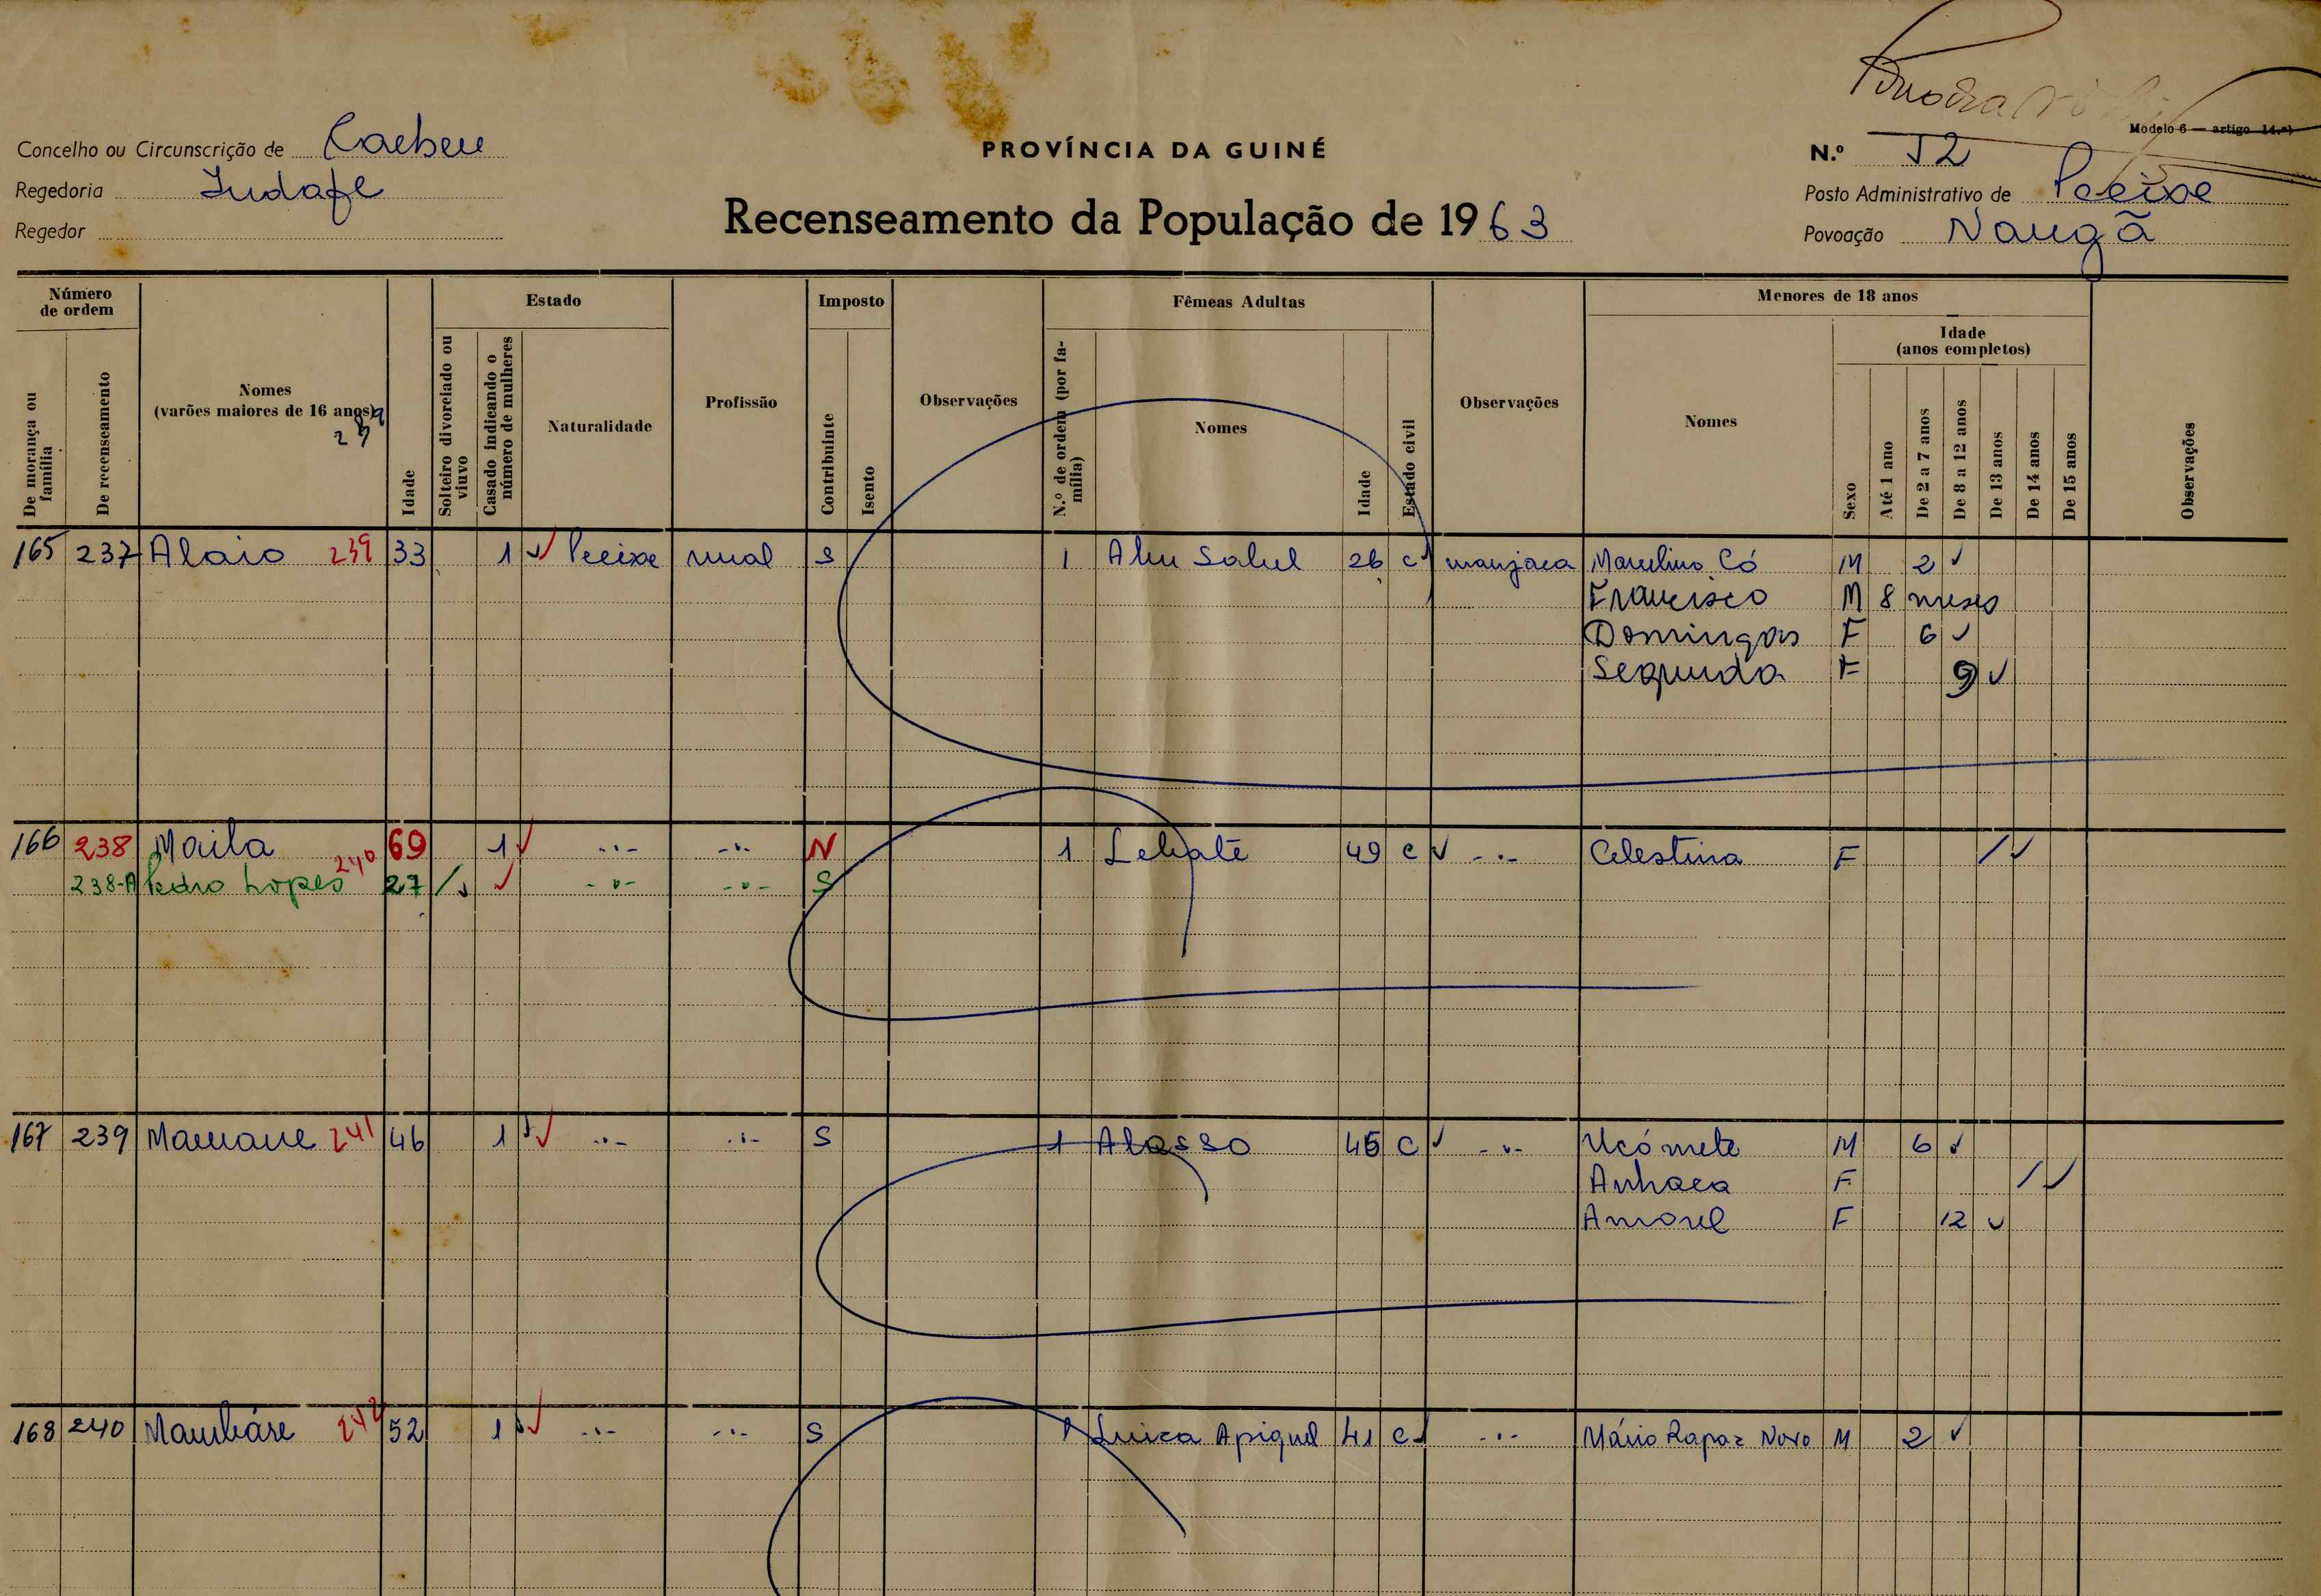 Modelo 6 — artigo 14.º)
Concelho ou Circunscrição de Cacheu
PROVÍNCIA DA GUINÉ
N.º 52
Regedoria Indafe
Posto Administrativo de Pecixe
Regedor
Recenseamento da População de 1963
Povoação Nangã
Número de ordem
Estado
Imposto
Fêmeas Adultas
Menores de 18 anos
De morança ou família
De recenseamento
Nomes
(varões maiores de 16 anos)
Idade
Solteiro divorciado ou viuvo
Casado indicando o número de mulheres
Naturalidade
Profissão
Contribuinte
Isento
Observações
N.º de ordem (por família)
Nomes
Idade
Estado civil
Observações
Nomes
Sexo
Idade
(anos completos)
Até 1 ano
De 2 a 7 anos
De 8 a 12 anos
De 13 anos
De 14 anos
De 15 anos
Observações
165 237 Alaio 239 33 1 Pecixe rural S 1 Abu Sabel 26 c manjaca Marcelino Có M 2
Francisco M 8 meses
Domingas F 6
Segunda F 9
166 238 Maila 69 1 -·- -·- N 1 Lebate 49 c -·- Celestina F /
238-A Pedro Lopes 240 27 / -·- -·- S
167 239 Mamane 241 46 1 -·- -·- S 1 Alasso 45 C -·- Ucómete M 6
Anhaca F /
Amonel F 12
168 240 Mambáre 242 52 1 -·- -·- S 1 Luica Apiquel 41 c -·- Mário Rapaz Novo M 2